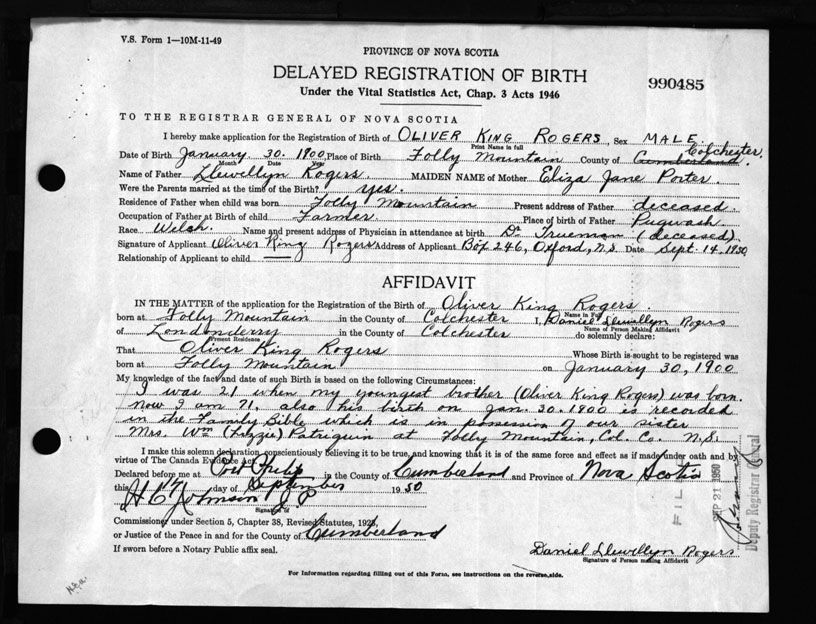 V.S. Form 1—10M-11-49
PROVINCE OF NOVA SCOTIA
DELAYED REGISTRATION OF BIRTH
990485
Under the Vital Statistics Act, Chap. 3 Acts 1946
TO THE REGISTRAR GENERAL OF NOVA SCOTIA
I hereby make application for the Registration of Birth of OLIVER KING ROGERS, Sex MALE.
Print Name in full
Colchester.
Date of Birth January 30. 1900, Place of Birth Folly Mountain County of Cumberland.
Month Date Year
Name of Father Llewellyn Rogers. MAIDEN NAME of Mother Eliza Jane Porter.
Were the Parents married at the time of the Birth? yes.
Residence of Father when child was born Folly Mountain Present address of Father deceased
Occupation of Father at Birth of child Farmer. Place of birth of Father Pugwash.
Race Welsh. Name and present address of Physician in attendance at birth Dr Trueman (deceased)
Signature of Applicant Oliver King Rogers Address of Applicant Box 246, Oxford, N.S. Date Sept. 14. 1950
Relationship of Applicant to child —
AFFIDAVIT
IN THE MATTER of the application for the Registration of the Birth of Oliver King Rogers.
Name in Full
born at Folly Mountain in the County of Colchester I, Daniel Llewellyn Rogers
Name of Person Making Affidavit
of Londonderry in the County of Colchester do solemnly declare:
Present Residence
That Oliver King Rogers Whose Birth is sought to be registered was
born at Folly Mountain on January 30, 1900
My knowledge of the fact and date of such Birth is based on the following Circumstances:
I was 21 when my youngest brother (Oliver King Rogers) was born.
Now I am 71, also his birth on Jan. 30. 1900 is recorded
in the Family Bible which is in possession of our sister
Mrs. Wm (Lizzie) Patriquin at Folly Mountain, Col. Co. N.S.
I make this solemn declaration, conscientiously believing it to be true, and knowing that it is of the same force and effect as if made under oath and by
virtue of The Canada Evidence Act.
Declared before me at Port Philip in the County of Cumberland and Province of Nova Scotia
this day of September 1950
Johnson J.P.
Signature of
Commissioner under Section 5, Chapter 38, Revised Statutes, 1923,
or Justice of the Peace in and for the County of Cumberland
If sworn before a Notary Public affix seal.
Daniel Llewellyn Rogers
Signature of Person making Affidavit
For Information regarding filling out of this Form, see instructions on the reverse side.
SEP 21 1950
Deputy Registrar General